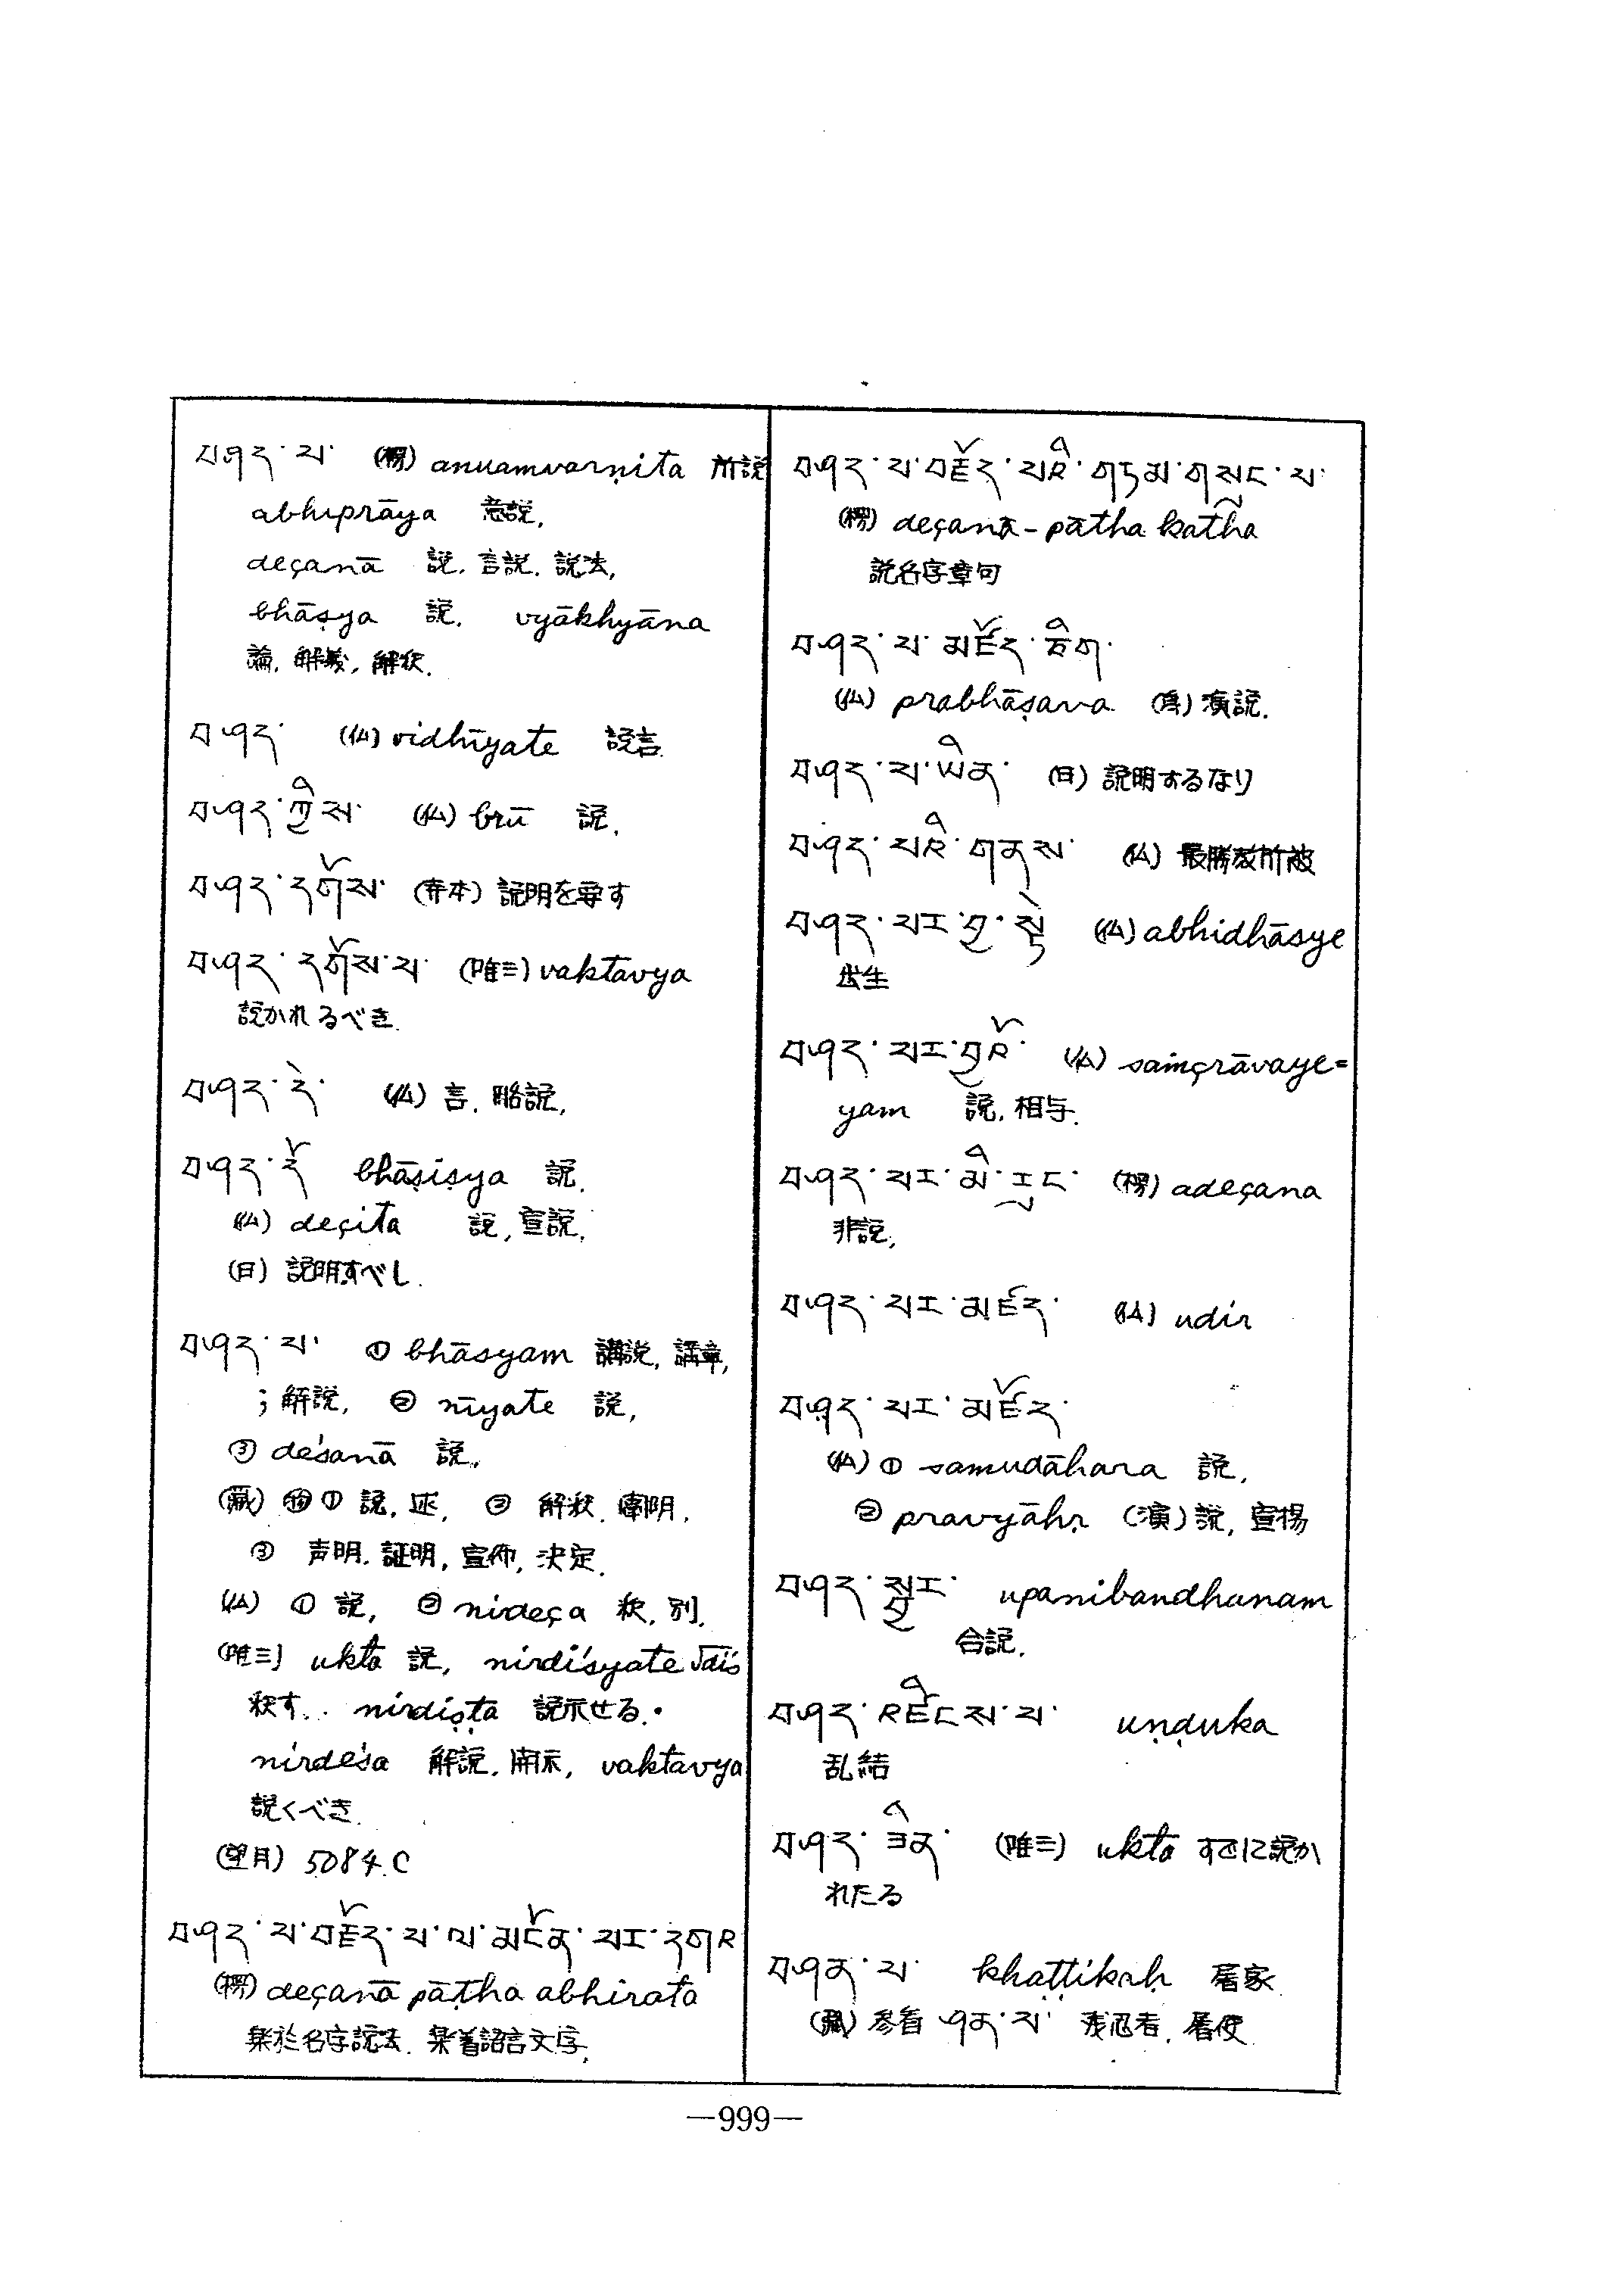 བཤད་པ་ (楞) anuamvarṇita 所説
abhiprāya 意説,
deçanā 説, 言説, 説法,
bhāṣya 説, vyākhyāna
論, 解義, 解釈.
བཤད་ (仏) vidhīyate 説言
བཤད་ཀྱིས་ (仏) brū 説,
བཤད་དགོས་ (寺本) 説明を要す
བཤད་དགོས་པ་ (唯三) vaktavya
説かれるべき.
བཤད་དེ་ (仏) 言, 略説,
བཤད་དོ bhāṣiṣya 説,
(仏) deçita 説, 宣説,
(日) 説明すべし.
བཤད་པ་ ① bhāsyam 講説, 講章,
; 解説, ② nīyate 説,
③ deśanā 説,
(蔵) ① 説, 述, ② 解釈, 闡明,
③ 声明, 証明, 宣佈, 決定.
(仏) ① 説, ② nirdeça 釈, 別,
(唯三) ukta 説, nirdiśyate √diś
釈す.. nirdiṣṭa 説示せる.
nirdeśa 解説, 開示, vaktavya
説くべき.
(望月) 5084.C
བཤད་པ་བརྗོད་པ་ལ་མངོན་པར་དགའ
(楞) deçanā pāṭha abhirata
楽於名字説法. 楽着語言文字,
བཤད་པ་བརྗོད་པའི་གཏམ་གསང་པ་
(楞) deçanā-pātha katha
説名字章句
བཤད་པ་མཛོད་ཅིག་
(仏) prabhāṣava 演説.
བཤད་པ་ཡིན་ (日) 説明するなり
བཤད་པའི་གནས་ (仏) 最勝教所被
བཤད་པར་བྱ་སྟེ (仏) abhidhāsye
生
བཤད་པར་བྱའོ་ (仏) saṁçrāvaye=
yam 説, 相与.
བཤད་པར་མི་རུང་ (楞) adeçana
非説,
བཤད་པར་མཛད་ (仏) udir
བཤད་པར་མཛོད་
(仏) ① samudāhara 説,
② pravyāhṛ (演)説, 宣揚
བཤད་སྦྱར་ upanibandhanam
合説,
བཤད་འཇིངས་པ་ uṇḍuka
乱結
བཤད་ཟིན་ (唯三) ukta すでに説か
れたる
བཤན་པ་ khaṭṭikaḥ 屠家
(蔵) 参看 ཤན་པ་ 残忍者, 屠使
—999—